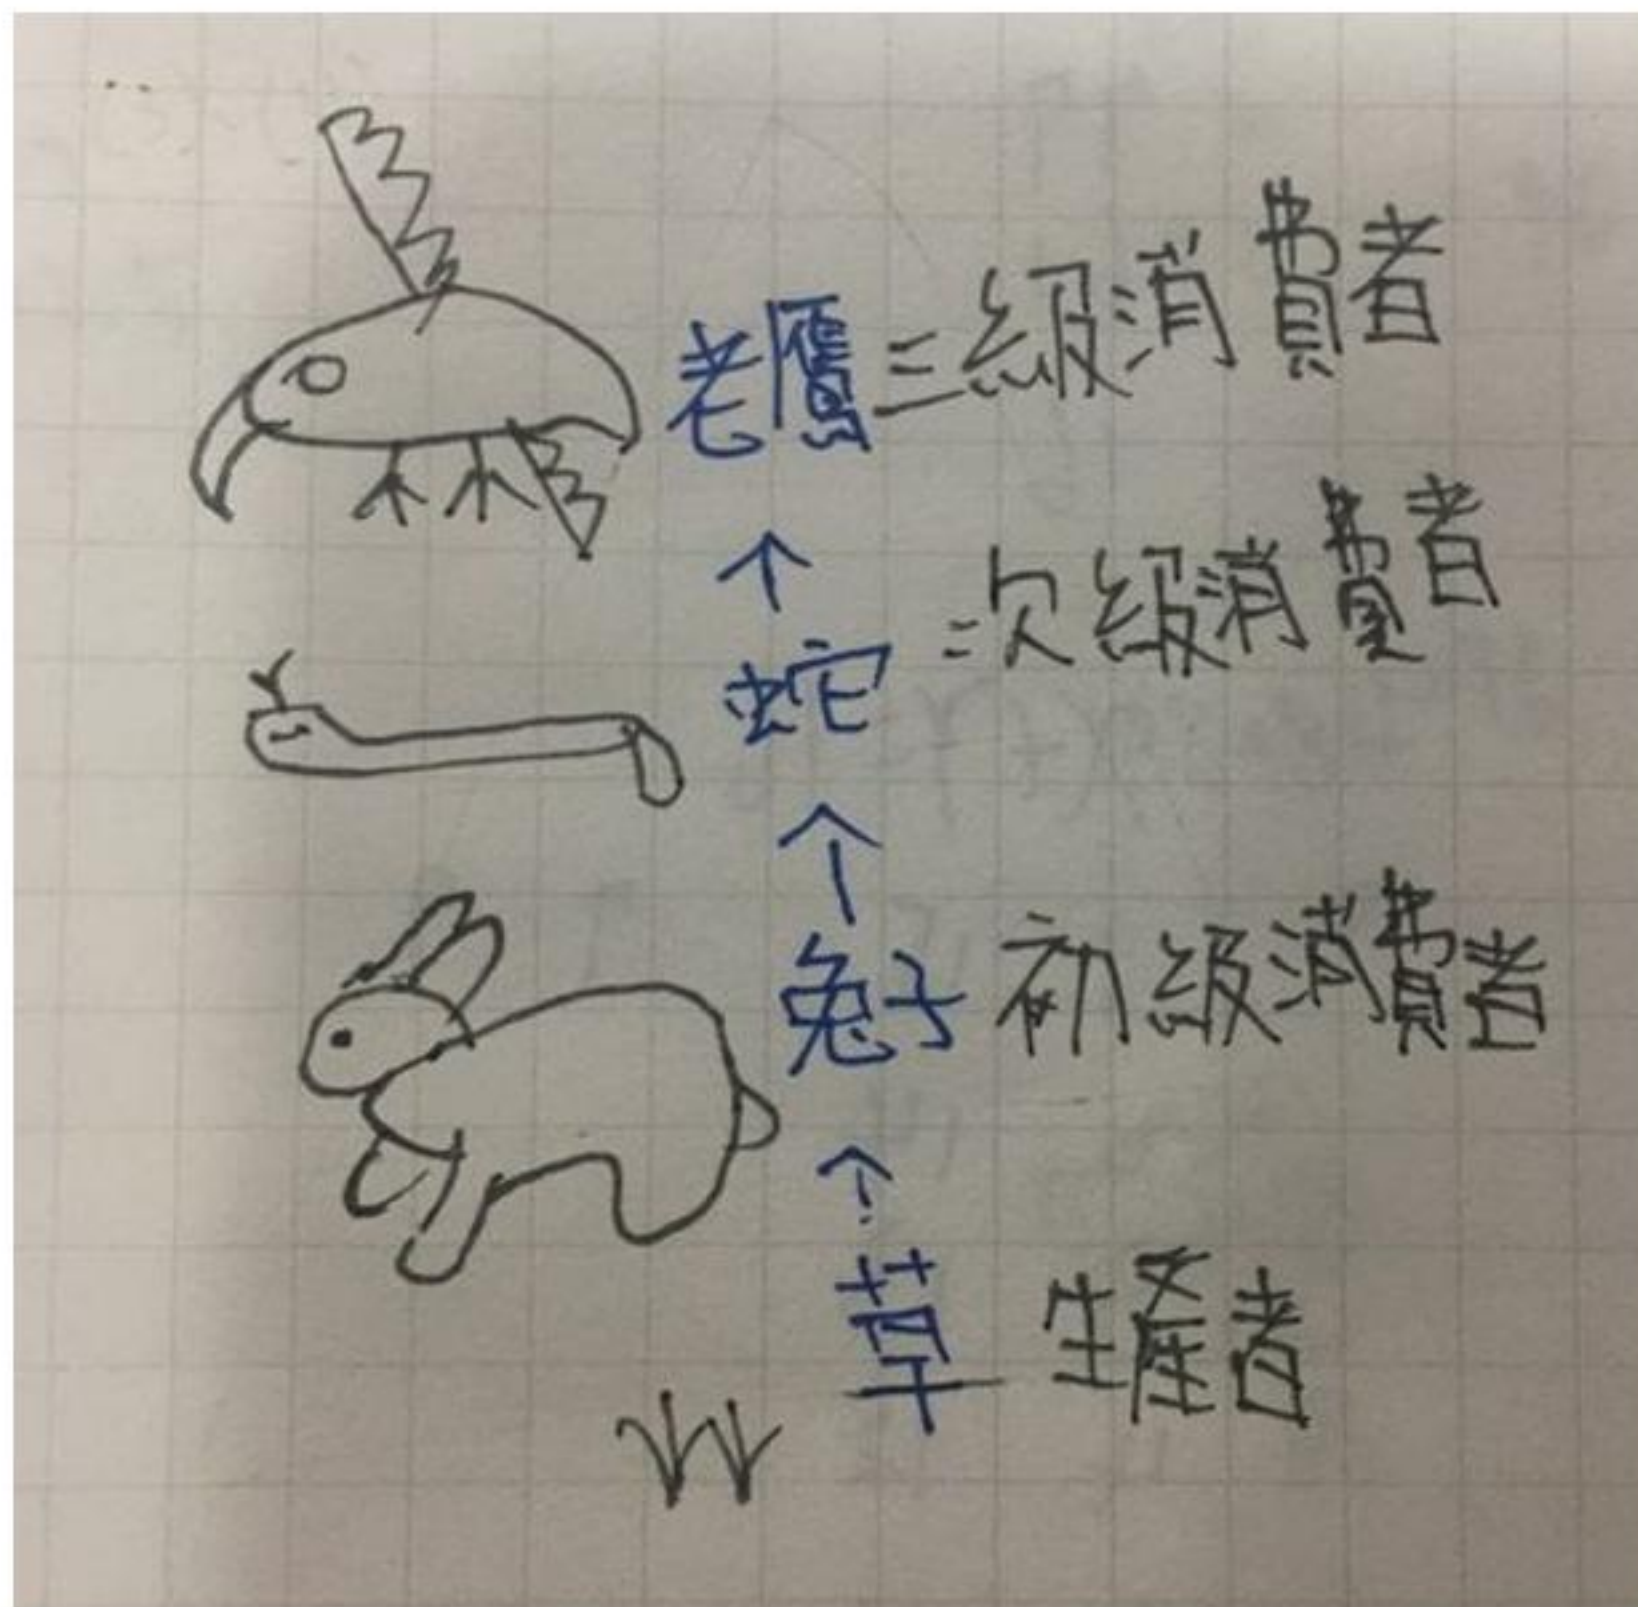 老鷹 三級消費者
↑
蛇 二次級消費者
↑
兔子 初級消費者
↑
草 生產者